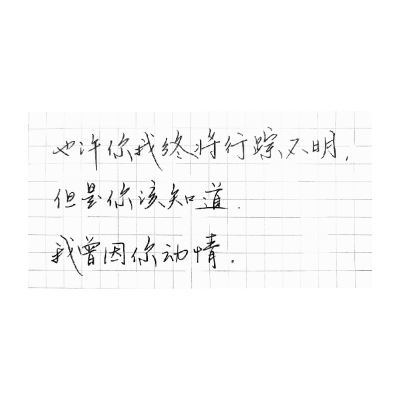 也许你我终将行踪不明,
但是你该知道.
我曾因你动情.